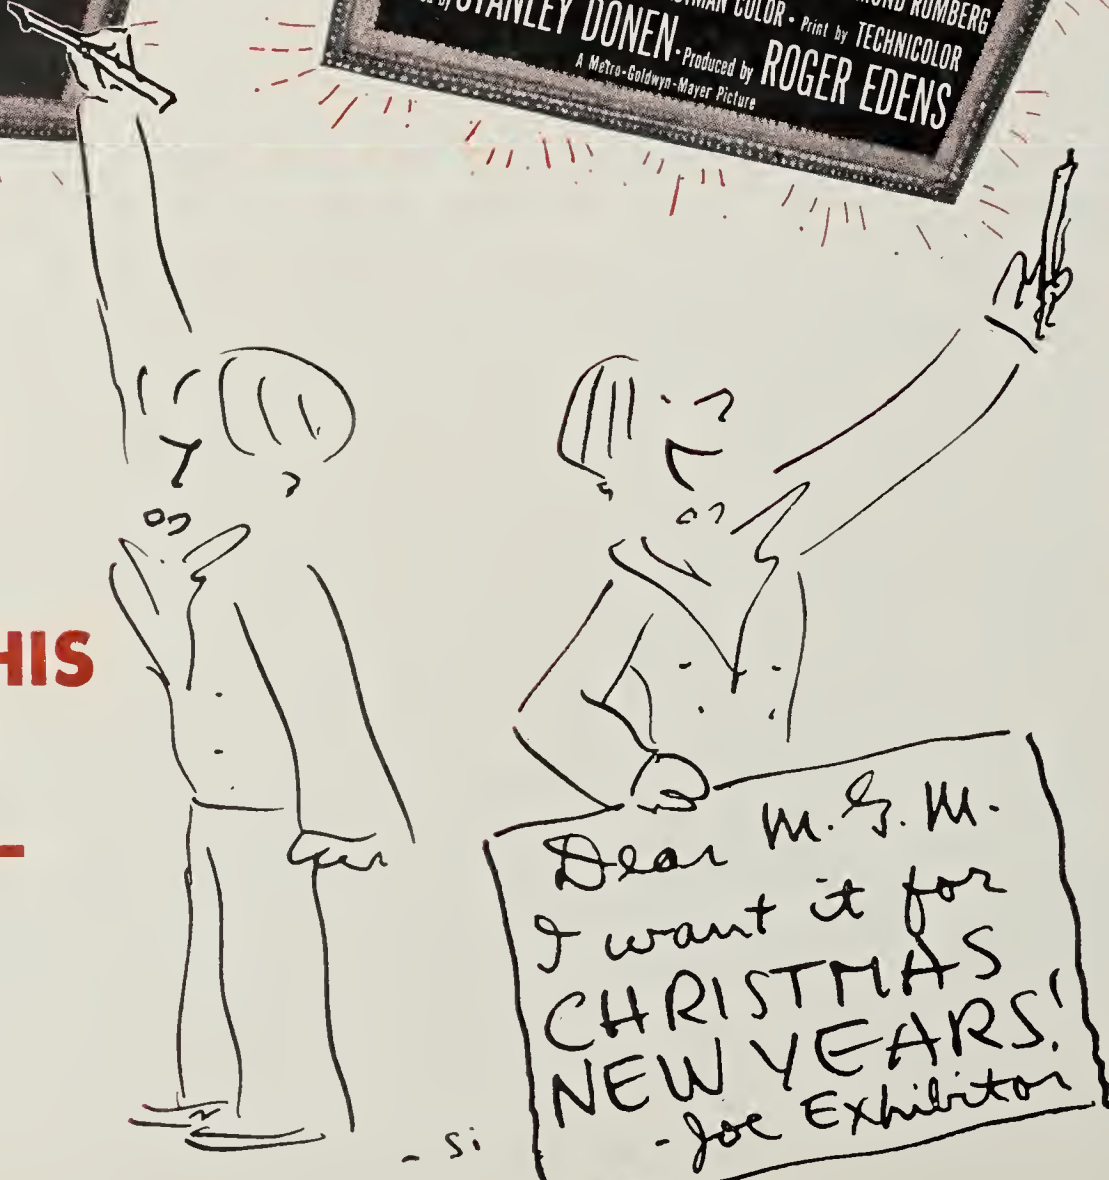 MOND ROMBERG
TMAN COLOR · Print by TECHNICOLOR
by STANLEY DONEN · Produced by ROGER EDENS
A Metro-Goldwyn-Mayer Picture
HIS
Dear M.G.M.
I want it for
CHRISTMAS
NEW YEARS!
- Joe Exhibitor
- Si